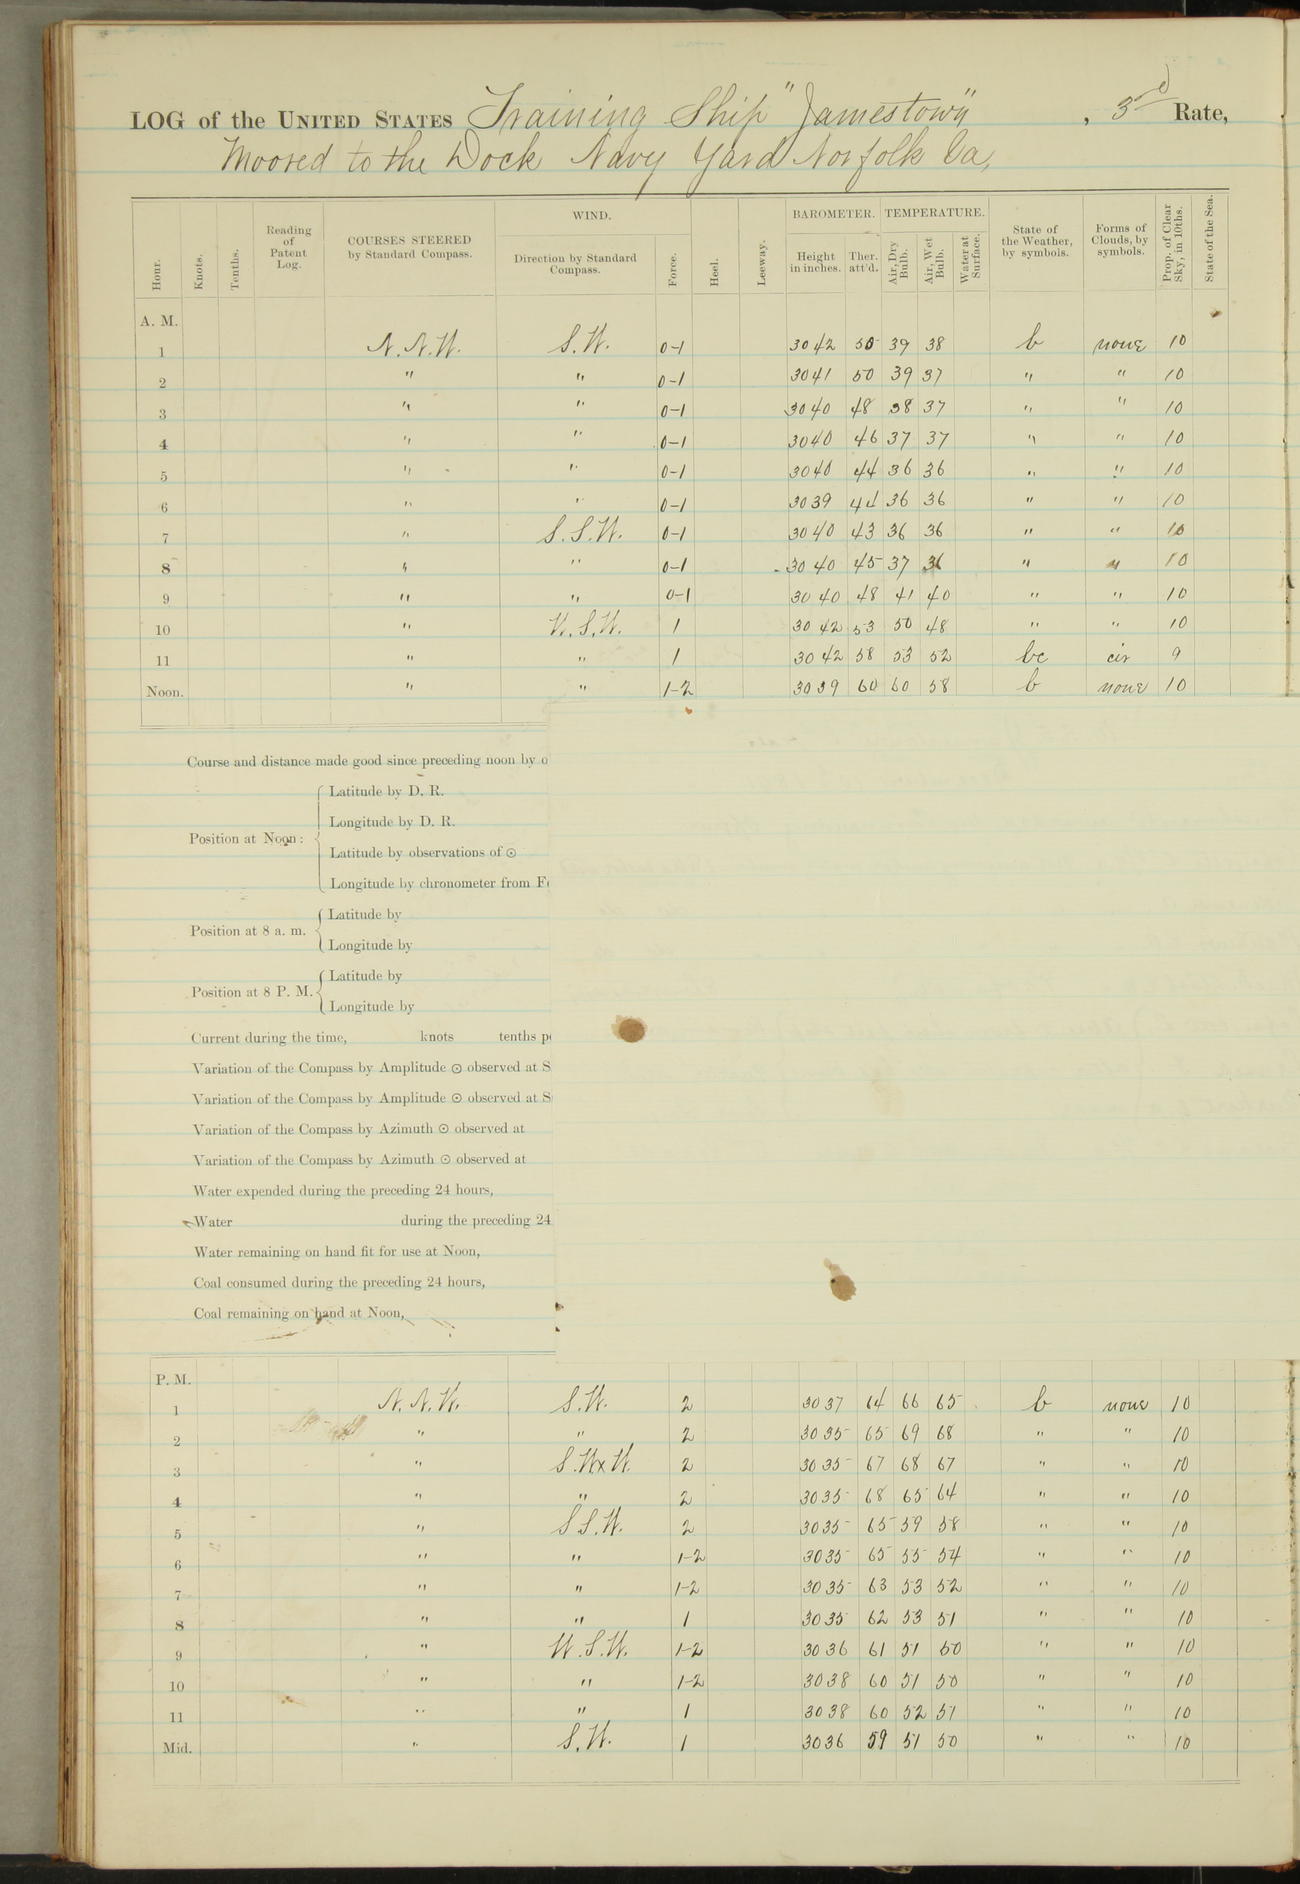 LOG of the UNITED STATES Training Ship "Jamestown", 3rd Rate,
Moored to the Dock Navy Yard Norfolk Va,
Hour. Knots. Tenths. Reading of Patent Log. COURSES STEERED by Standard Compass. WIND. Direction by Standard Compass. Force. Heel. Leeway. BAROMETER. Height in inches. Ther. att'd. TEMPERATURE. Air, Dry Bulb. Air, Wet Bulb. Water at Surface. State of the Weather, by symbols. Forms of Clouds, by symbols. Prop. of Clear Sky, in 10ths. State of the Sea.
A. M.
1 N.N.W. S.W. 0-1 30 42 50 39 38 b none 10
2 " " 0-1 30 41 50 39 37 " " 10
3 " " 0-1 30 40 48 38 37 " " 10
4 " " 0-1 30 40 46 37 37 " " 10
5 " " 0-1 30 40 44 36 36 " " 10
6 " " 0-1 30 39 44 36 36 " " 10
7 " S.S.W. 0-1 30 40 43 36 36 " " 10
8 " " 0-1 30 40 45 37 36 " " 10
9 " " 0-1 30 40 48 41 40 " " 10
10 " W.S.W. 1 30 42 53 50 48 " " 10
11 " " 1 30 42 58 53 52 bc cir 9
Noon. " " 1-2 30 39 60 60 58 b none 10
Course and distance made good since preceding noon by o
Position at Noon:
Latitude by D. R.
Longitude by D. R.
Latitude by observations of ☉
Longitude by chronometer from F
Position at 8 a. m.
Latitude by
Longitude by
Position at 8 P. M.
Latitude by
Longitude by
Current during the time, knots tenths p
Variation of the Compass by Amplitude ☉ observed at S
Variation of the Compass by Amplitude ☉ observed at S
Variation of the Compass by Azimuth ☉ observed at
Variation of the Compass by Azimuth ☉ observed at
Water expended during the preceding 24 hours,
Water during the preceding 24
Water remaining on hand fit for use at Noon,
Coal consumed during the preceding 24 hours,
Coal remaining on hand at Noon,
P. M.
1 N.N.W. S.W. 2 30 37 64 66 65 b none 10
2 " " 2 30 35 65 69 68 " " 10
3 " S.WxW. 2 30 35 67 68 67 " " 10
4 " " 2 30 35 68 65 64 " " 10
5 " S.S.W. 2 30 35 65 59 58 " " 10
6 " " 1-2 30 35 65 55 54 " " 10
7 " " 1-2 30 35 63 53 52 " " 10
8 " " 1 30 35 62 53 51 " " 10
9 " W.S.W. 1-2 30 36 61 51 50 " " 10
10 " " 1-2 30 38 60 51 50 " " 10
11 " " 1 30 38 60 52 51 " " 10
Mid. " S.W. 1 30 36 59 51 50 " " 10